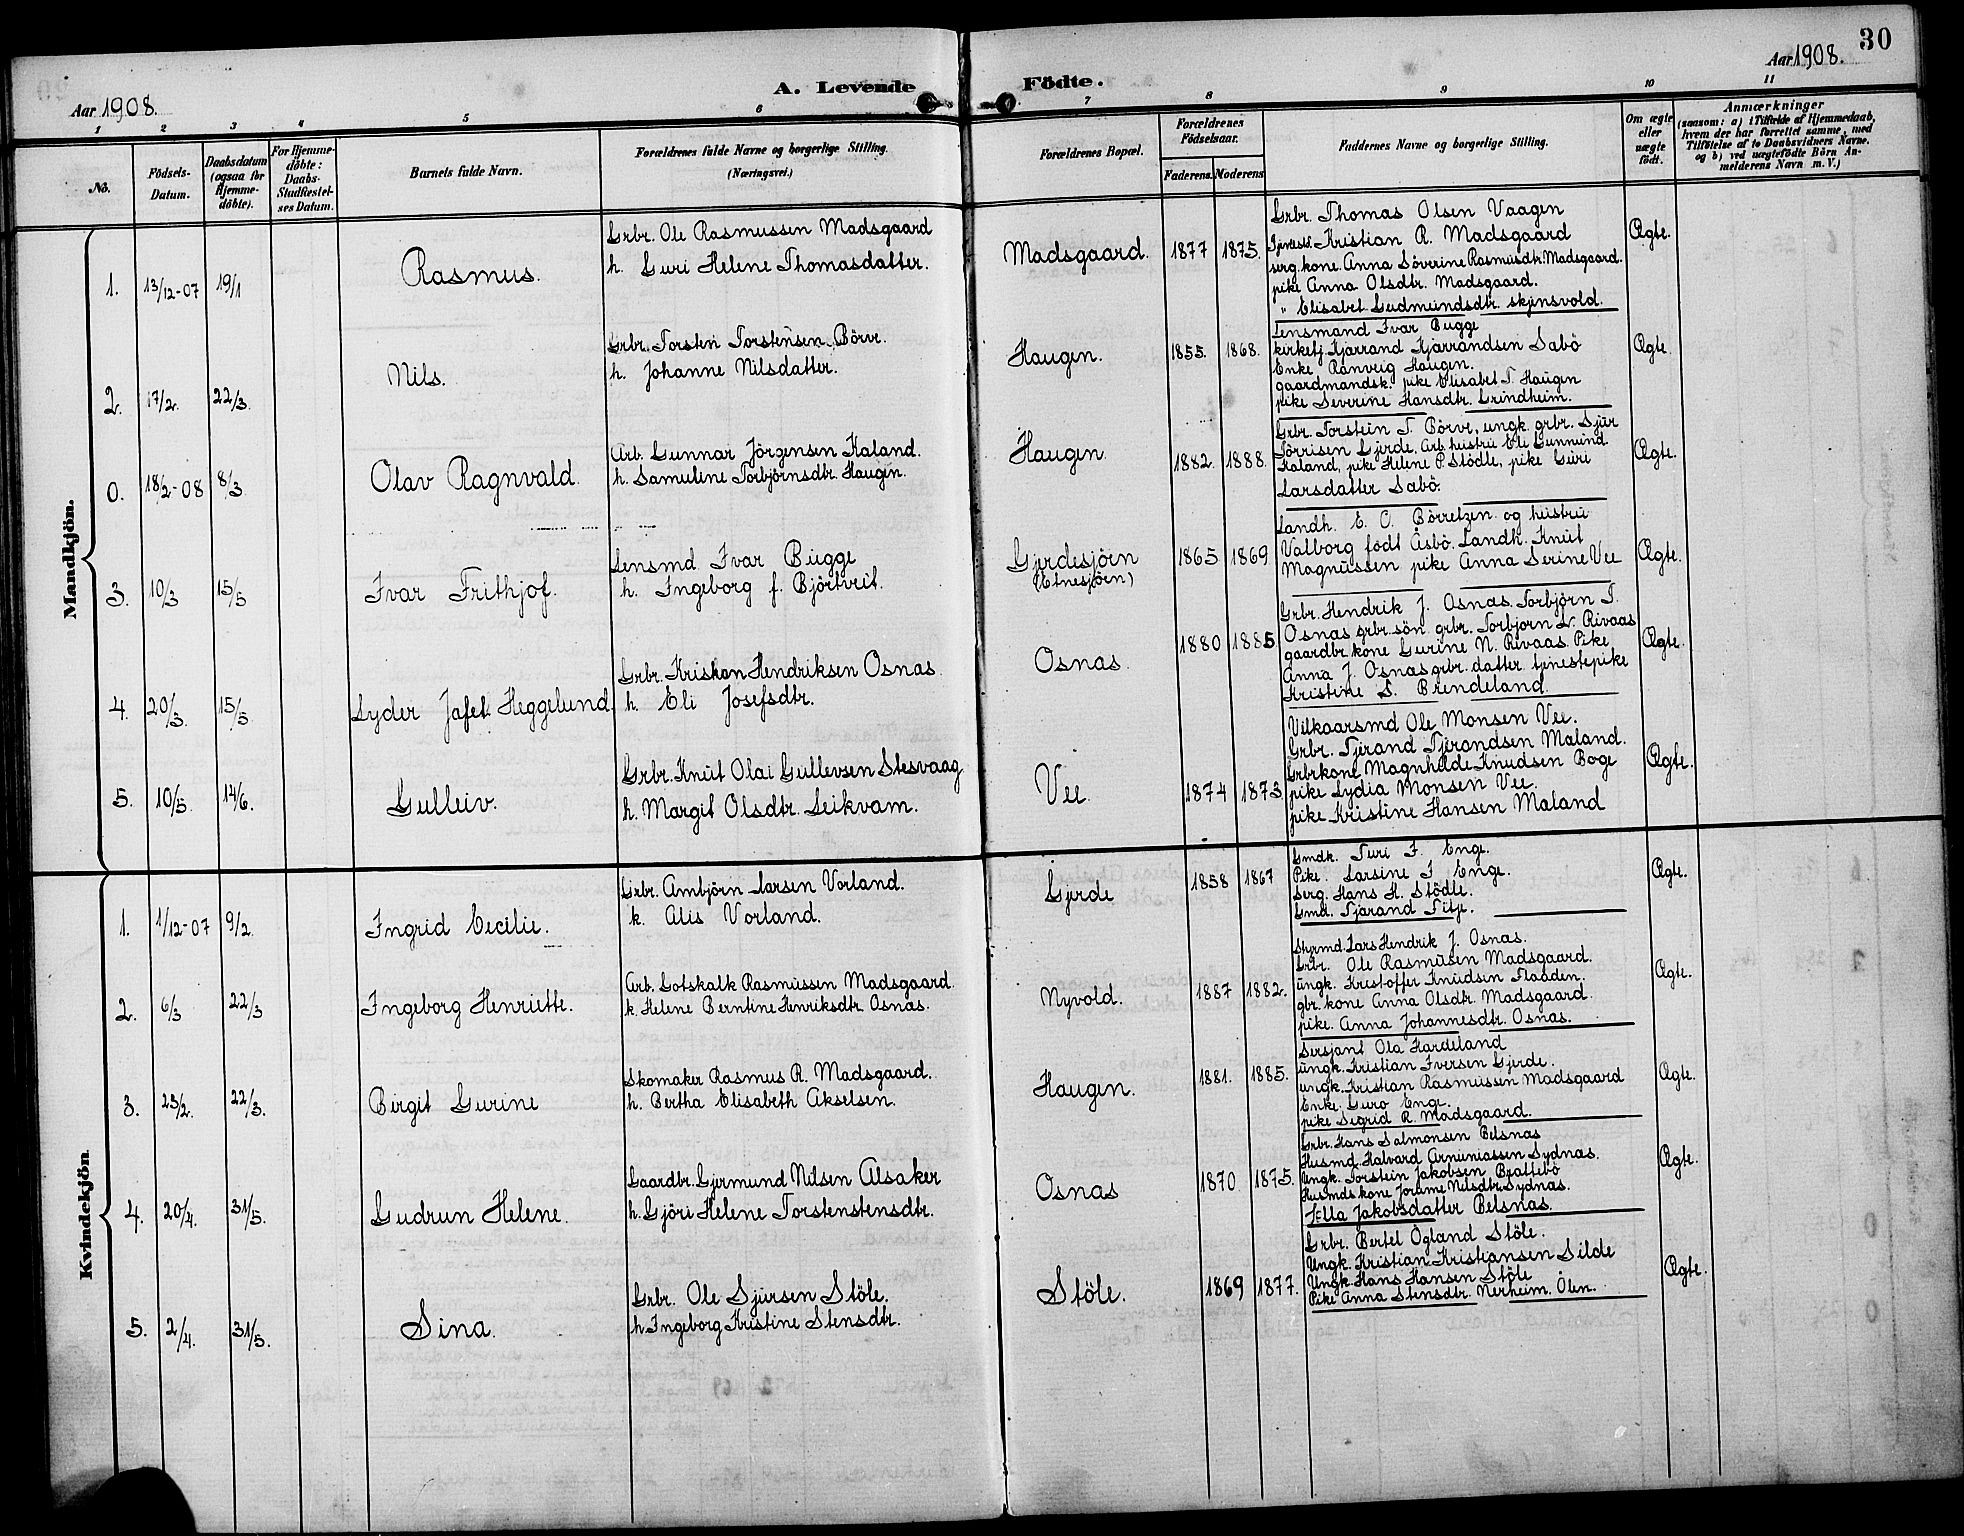 30
Aar 1908.
A. Levende Födte.
Aar 1908.
1 2 3 4 5 6 7 8 9 10 11
No.
Födsels-Datum.
Daabsdatum (ogsaa for Hjemme-döbte).
For Hjemme-döbte: Daabs-Stadfæstel-ses Datum.
Barnets fulde Navn.
Forældrenes fulde Navne og borgerlige Stilling.
(Næringsvei.)
Forældrenes Bopæl.
Forældrenes Födselsaar.
Faderens. Moderens
Faddernes Navne og borgerlige Stilling.
Om ægte eller uægte födt.
Anmærkninger
(saasom: a) i Tilfælde af Hjemmedaab,
hvem der har forrettet samme, med
Tilföielse af to Daabsvidners Navne,
og b) ved uægtefödte Börn An-
melderens Navn m. V.)
Mandkjön.
1. 13/12-07 19/1 Rasmus.
Grbr. Ole Rasmussen Madsgaard
h. Guri Helene Thomasdatter.
Madsgaard. 1877 1875.
Grbr. Thomas Olsen Vaagen
Kristian R. Madsgaard
serg. kone. Anna Söverine Rasmusdtr. Madsgaard.
pike Anna Olsdtr. Madsgaard.
" Elisabet Gudmundsdtr. skjinsvold.
Ægte.
2. 17/2. 22/3. Nils.
Grbr. Torsten Torstensen Börve.
h. Johanne Nilsdatter.
Haugen. 1855. 1868.
Lensmand Ivar Bugge
kirketj. Kjærrand Kjærrandsen Sabö
Enke Ranveig Haugen.
gaardmandsk. pike Elisabet T. Haugen
pike Severine Hansdtr. Grindheim.
Ægte.
0. 18/2-08 8/3 Olav Ragnvald.
Arb. Gunnar Jörgensen Kaland.
h. Samuline Torbjörnsdtr. Haugen.
Haugen 1882. 1888.
Grbr. Torstein T. Börve, ungk. grbr. Sjur
Törrisen Gjerde, Arb. hustru Eli Gunnund.
Kaland, pike Helene P. Stödle, pike Guri
Larsdatter Sabö.
Ægte.
3. 10/3 15/5 Ivar Frithjof.
Lensmd Ivar Bugge
h. Ingeborg f. Björtveit.
Gjerdesjörn
(Etnesjörn)
1865 1869
Landh. E. O. Börretzen og hustru
Valborg född Åsbö. Landh. Knut
Magnussen pike Anna Serine Vee
Ægte.
4. 20/3. 15/5. Lyder Jafet Heggelund.
Grbr. Kristian Hendriksen Osnas.
h. Eli Josefsdtr.
Osnas. 1880 1885
Grbr. Hendrik J. Osnas. Torbjörn T.
Osnas grbr. sön grbr. Torbjorn N. Rivaas
gaardbr. kone Gurine N. Rivaas Pike
Anna J. Osnas grbr. datter tjenestepike
Kristine S. Brendeland.
Ægte.
5. 10/5. 14/6. Gulleiv.
Grbr. Knut Olai Gullevsen Stesvaag
h. Margit Olsdtr. Leikvam.
Vee. 1874 1873
Vilkaarsmd Ole Monsen Vee.
Grbr. Tjerand Tjerandsen Maland.
Grbrkone Magnhilde Knudsen Boge
pike Lydia Monsen Vee.
pike Kristine Hansen Maland
Ægte.
Kvindekjön
1. 1/12-07 9/2. Ingrid Cecilie.
Grbr. Ambjörn Larsen Vorland.
k. Alis Vorland.
Gjerde 1858 1867
Gmdk. Turi I. Enge.
Pike. Larsine I Enge.
Serg. Hans H. Stödle.
Gmd. Tjærand Titje.
Ægte.
2. 6/3 22/3 Ingeborg Henriette.
Arb. Gotskalk Rasmussen Madsgaard.
k. Helene Berntine Henriksdtr. Osnas.
Nyvold. 1887 1882.
Styrmd. Lars Hendrik J. Osnas.
Grbr. Ole Rasmusen Madsgaard.
ungk. Kristoffer Knudsen Flaaden.
gbr. kone Anna Olsdtr. Madsgaard.
pike. Anna Johannesdtr. Osnas.
Ægte.
3. 23/2. 22/3. Birgit Gurine
Skomaker Rasmus R. Madsgaard.
h. Bertha Elisabeth Akselsen.
Haugen. 1881. 1885.
Sersjant Ola Hardeland
ungk. Kristian Iversen Gjerde.
ungk. Kristian Rasmussen Madsgaard
Enke. Guro Enge.
pike Sigrid R. Madsgaard.
Ægte.
4. 20/4. 31/5. Gudrun Helene.
Gaardbr. Gjermund Nilsen Alsaker
h. Gjöri Helene Torstenstensdtr.
Osnas 1870 1875.
Grbr. Hans Salmonsen Belsnas
Husmd. Halvard Arnuniassen Sydnas.
Ungk. Torstein Jakobsen Brattebö
Husmds kone Jorame Nilsdtr. Sydnas.
Ella Jakobsdatter Belsnas.
Ægte.
5. 2/4. 31/5. Sina.
Grbr. Ole Sjursen Stöle.
h. Ingeborg Kristine Stensdtr.
Stöle. 1869 1877.
Grbr. Bertel Ögland Stöle.
Ungk. Kristian Kristiansen Silde
Ungk. Hans Hansen Stöle
Pike Anna Stensdtr. Nerheim. Ölen.
Ægte.